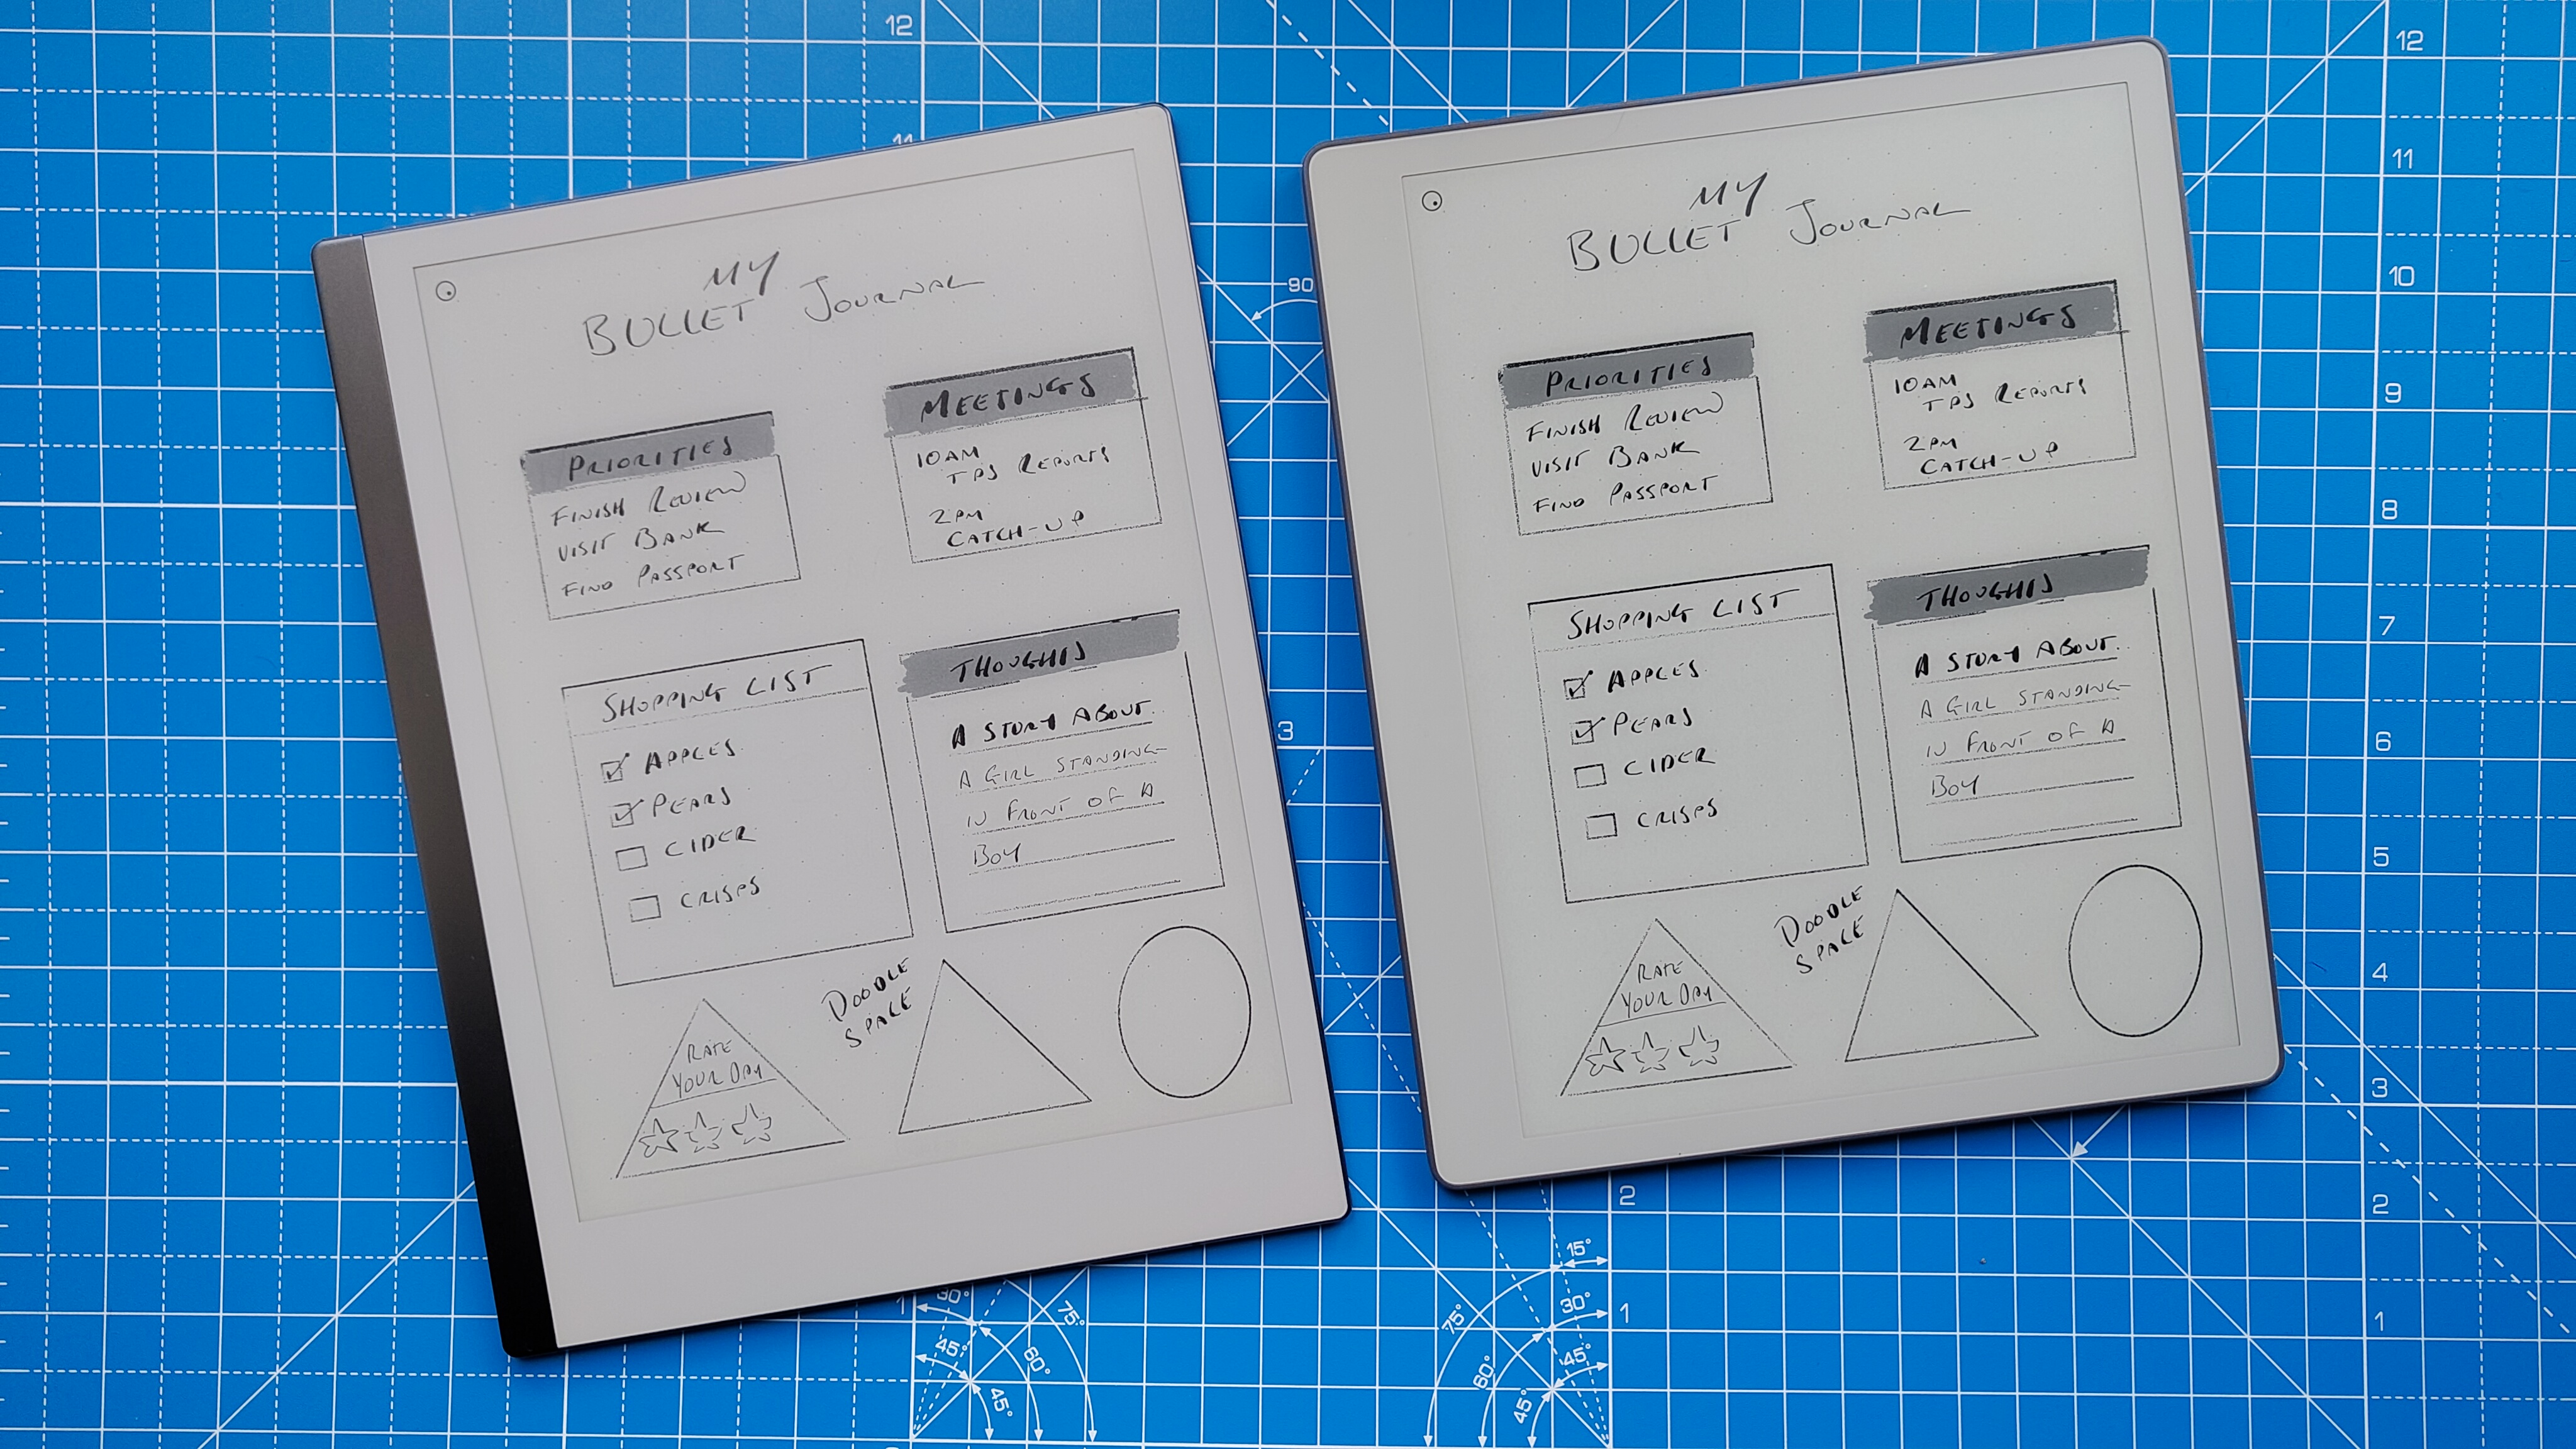 MY
BULLET JOURNAL
PRIORITIES
FINISH REVIEW
VISIT BANK
FIND PASSPORT
MEETINGS
10AM
TPS REPORTS
2PM
CATCH-UP
SHOPPING LIST
APPLES
PEARS
CIDER
CRISPS
THOUGHTS
A STORY ABOUT
A GIRL STANDING
IN FRONT OF A
BOY
RATE
YOUR DAY
DOODLE
SPACE
MY
BULLET JOURNAL
PRIORITIES
FINISH REVIEW
VISIT BANK
FIND PASSPORT
MEETINGS
10AM
TPS REPORTS
2PM
CATCH-UP
SHOPPING LIST
APPLES
PEARS
CIDER
CRISPS
THOUGHTS
A STORY ABOUT
A GIRL STANDING
IN FRONT OF A
BOY
RATE
YOUR DAY
DOODLE
SPACE
12
11
90
3
1
30°
45°
75°
60°
45°
2
15°
75°
30°
1
60°
45°
45°
12
11
10
9
8
7
6
5
4
3
2
1